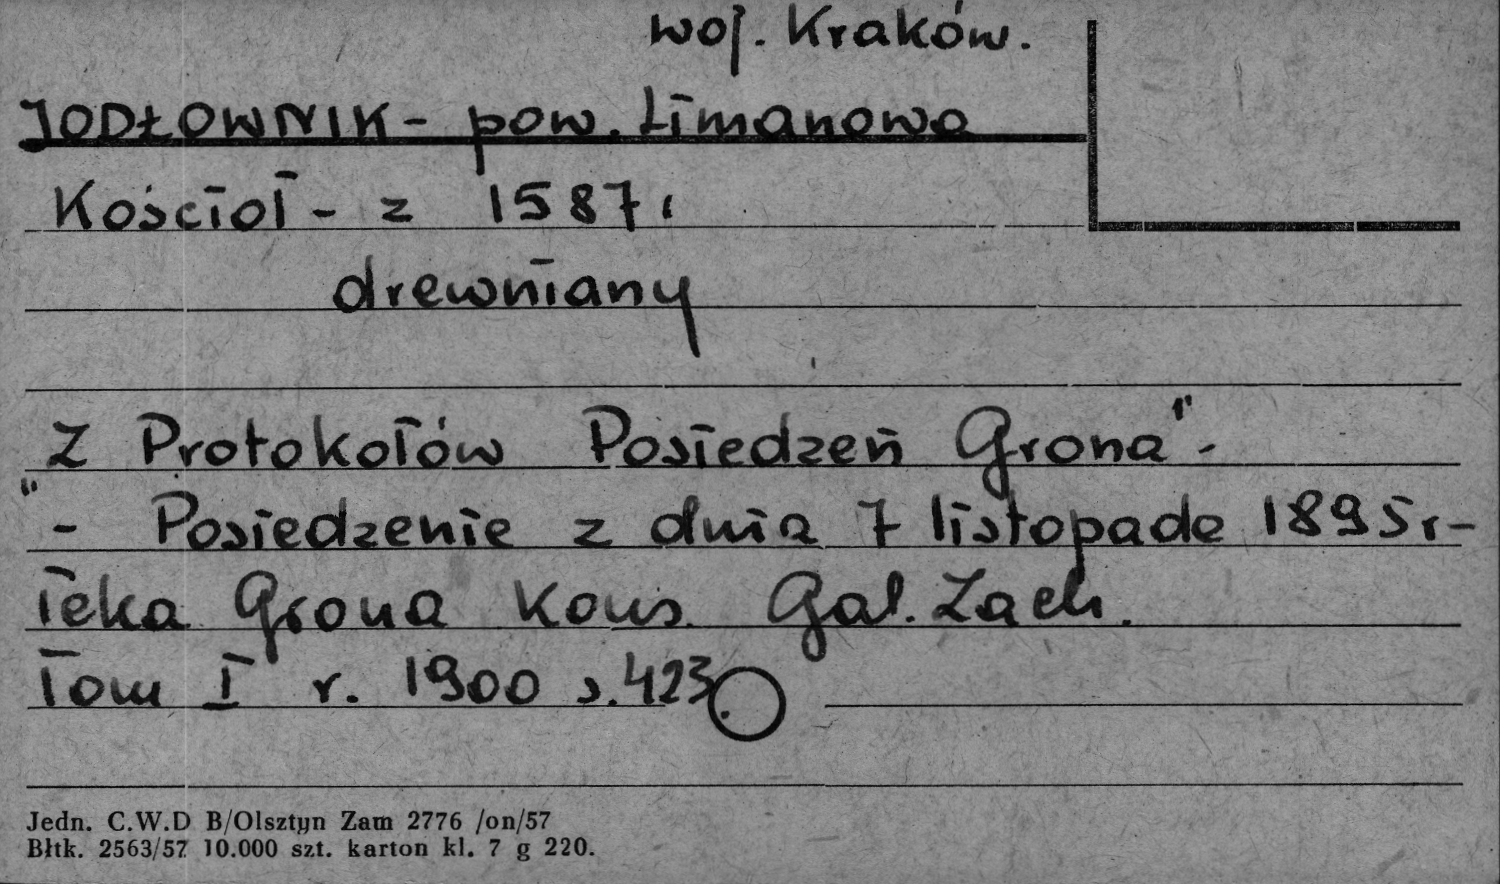 woj. Kraków.
JODŁOWNIK - pow. Limanowa
Kościoł - z 1587 r
drewniany
"Z Protokołów Posiedzeń Grona" -
- Posiedzenie z dnia 7 listopada 1895 r -
Teka Grona Kons. Gal. Zach.
Tom I r. 1900 s. 423.
Jedn. C.W.D B/Olsztyn Zam 2776 /on/57
Błtk. 2563/57 10.000 szt. karton kl. 7 g 220.